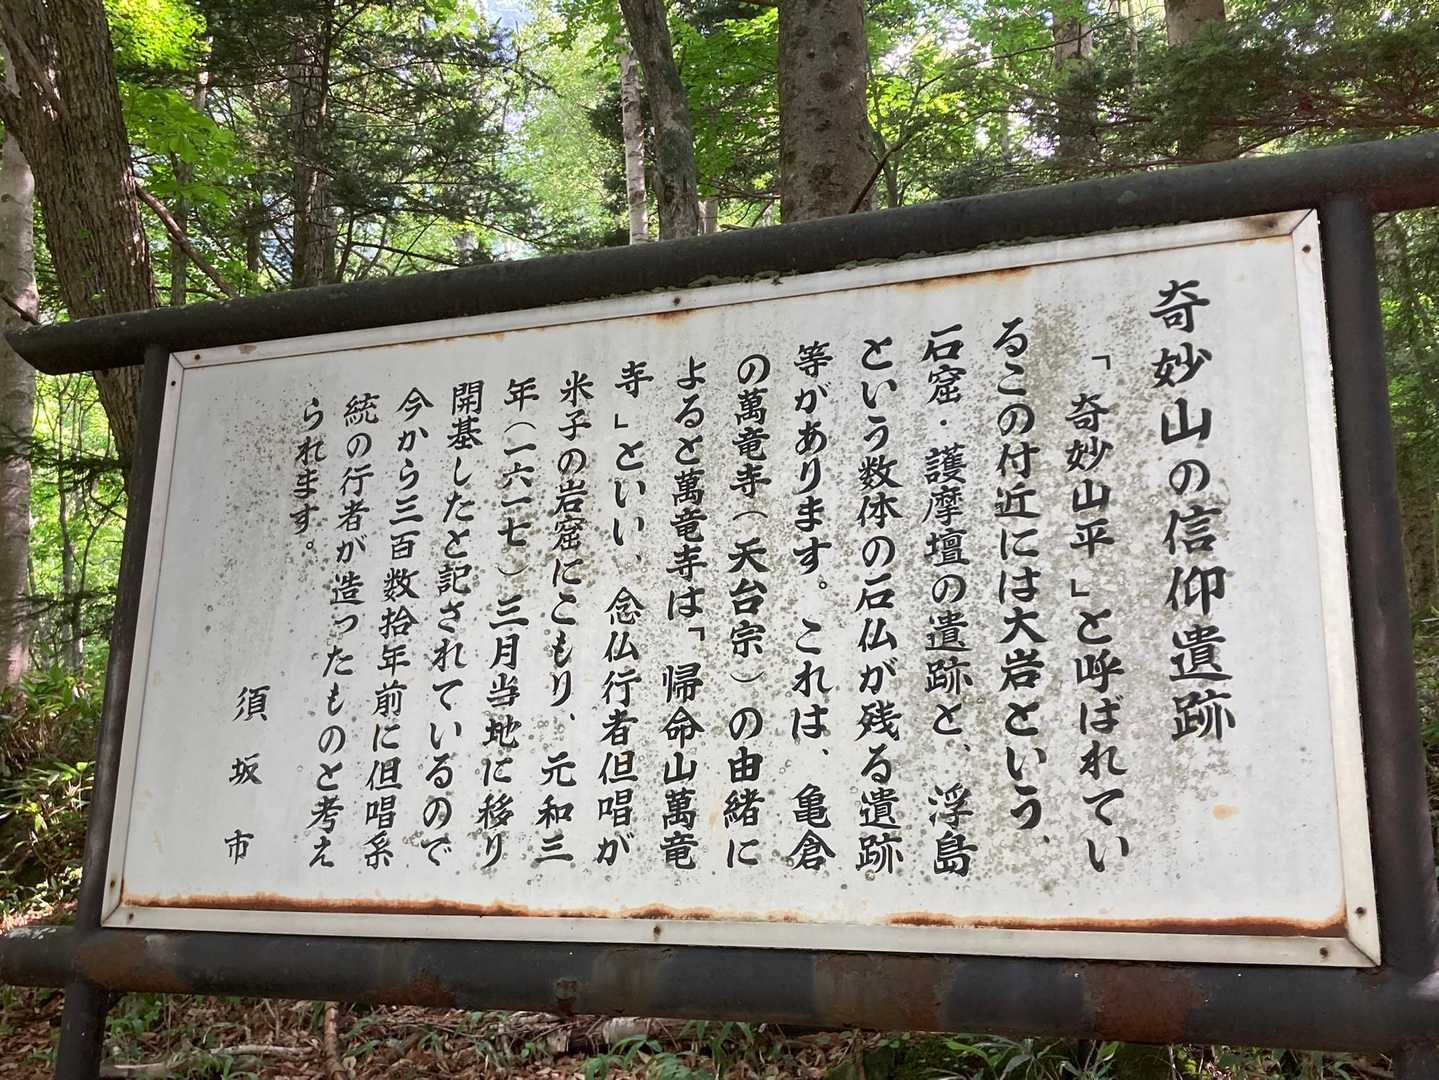 奇妙山の信仰遺跡
「奇妙山平」と呼ばれてい
るこの付近には大岩という、
石窟・護摩壇の遺跡と、浮島
という数体の石仏が残る遺跡
等があります。これは、亀倉
の萬竜寺(天台宗)の由緒に
よると萬竜寺は「帰命山萬竜
寺」といい、念仏行者但唱が
米子の岩窟にこもり、元和三
年(一六一七)三月当地に移り
開基したと記されているので
今から三百数拾年前に但唱系
統の行者が造ったものと考え
られます。
須坂市